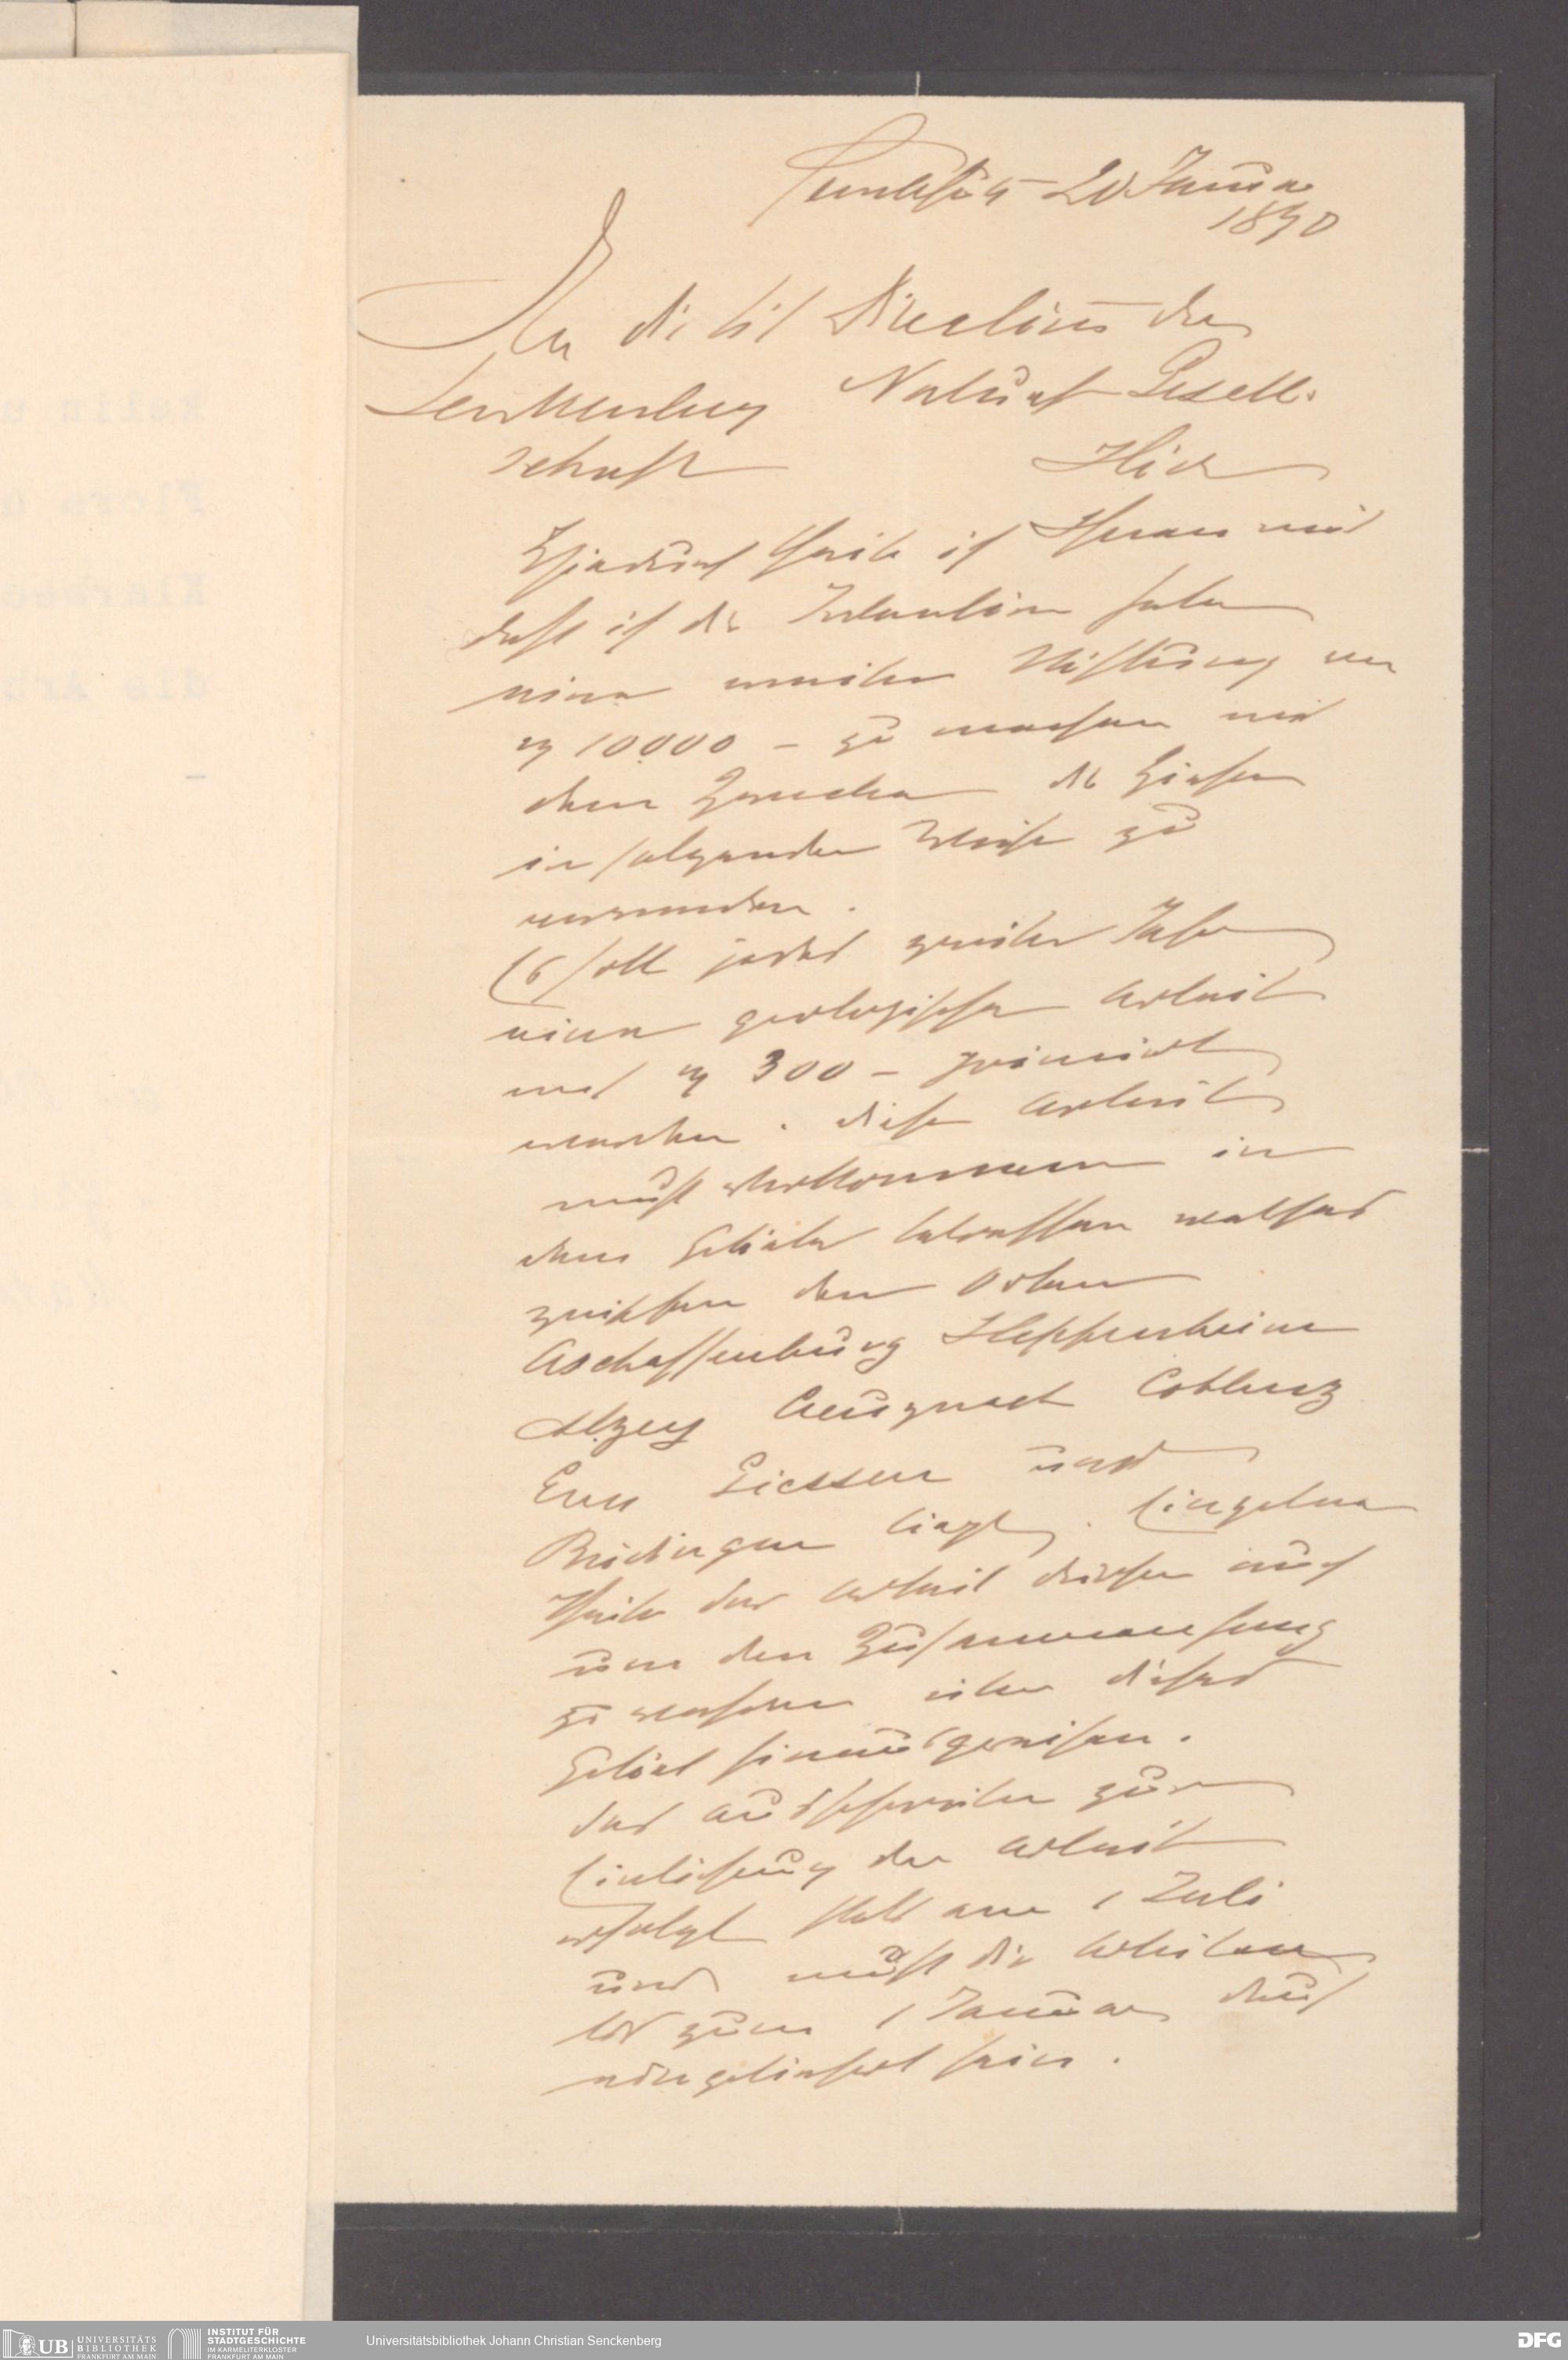 Frankfurt 20 Januar
1890
An die tit Direction der
Senckenberg Naturf Gesell-
schaft Hier
Hierdurch theile ich Ihnen mit
daß ich die Intention habe
eine weitere Stiftung von
M 10000 – zu machen mit
dem Zwecke die Zinsen
in folgender Weise zu
verwenden.
Es soll jedes zweite Jahr
eine geologische Arbeit
mit M 300 – prämiirt
werden. Diese Arbeit
muß
dem Gebiete betreffen welches
zwischen den Orten
Aschaffenburg Heppenheim
Alzey Creuznach Coblenz
Ems Giessen und
Büdingen liegt. Einzelne
Theile der Arbeit dürfen auch
um den Zusammenhang
zu wahren über dieses
Gebiet hinausgreifen.
Das Ausschreiben zur
Einlieferung der Arbeit
erfolgt stets am 1 Juli
und muß die Arbeit
bis zum 1 Januar
eingeliefert sein.
UB UNIVERSITÄTS
BIBLIOTHEK
FRANKFURT AM MAIN
INSTITUT FÜR
STADTGESCHICHTE
IM KARMELITERKLOSTER
FRANKFURT AM MAIN
Universitätsbibliothek Johann Christian Senckenberg
DFG